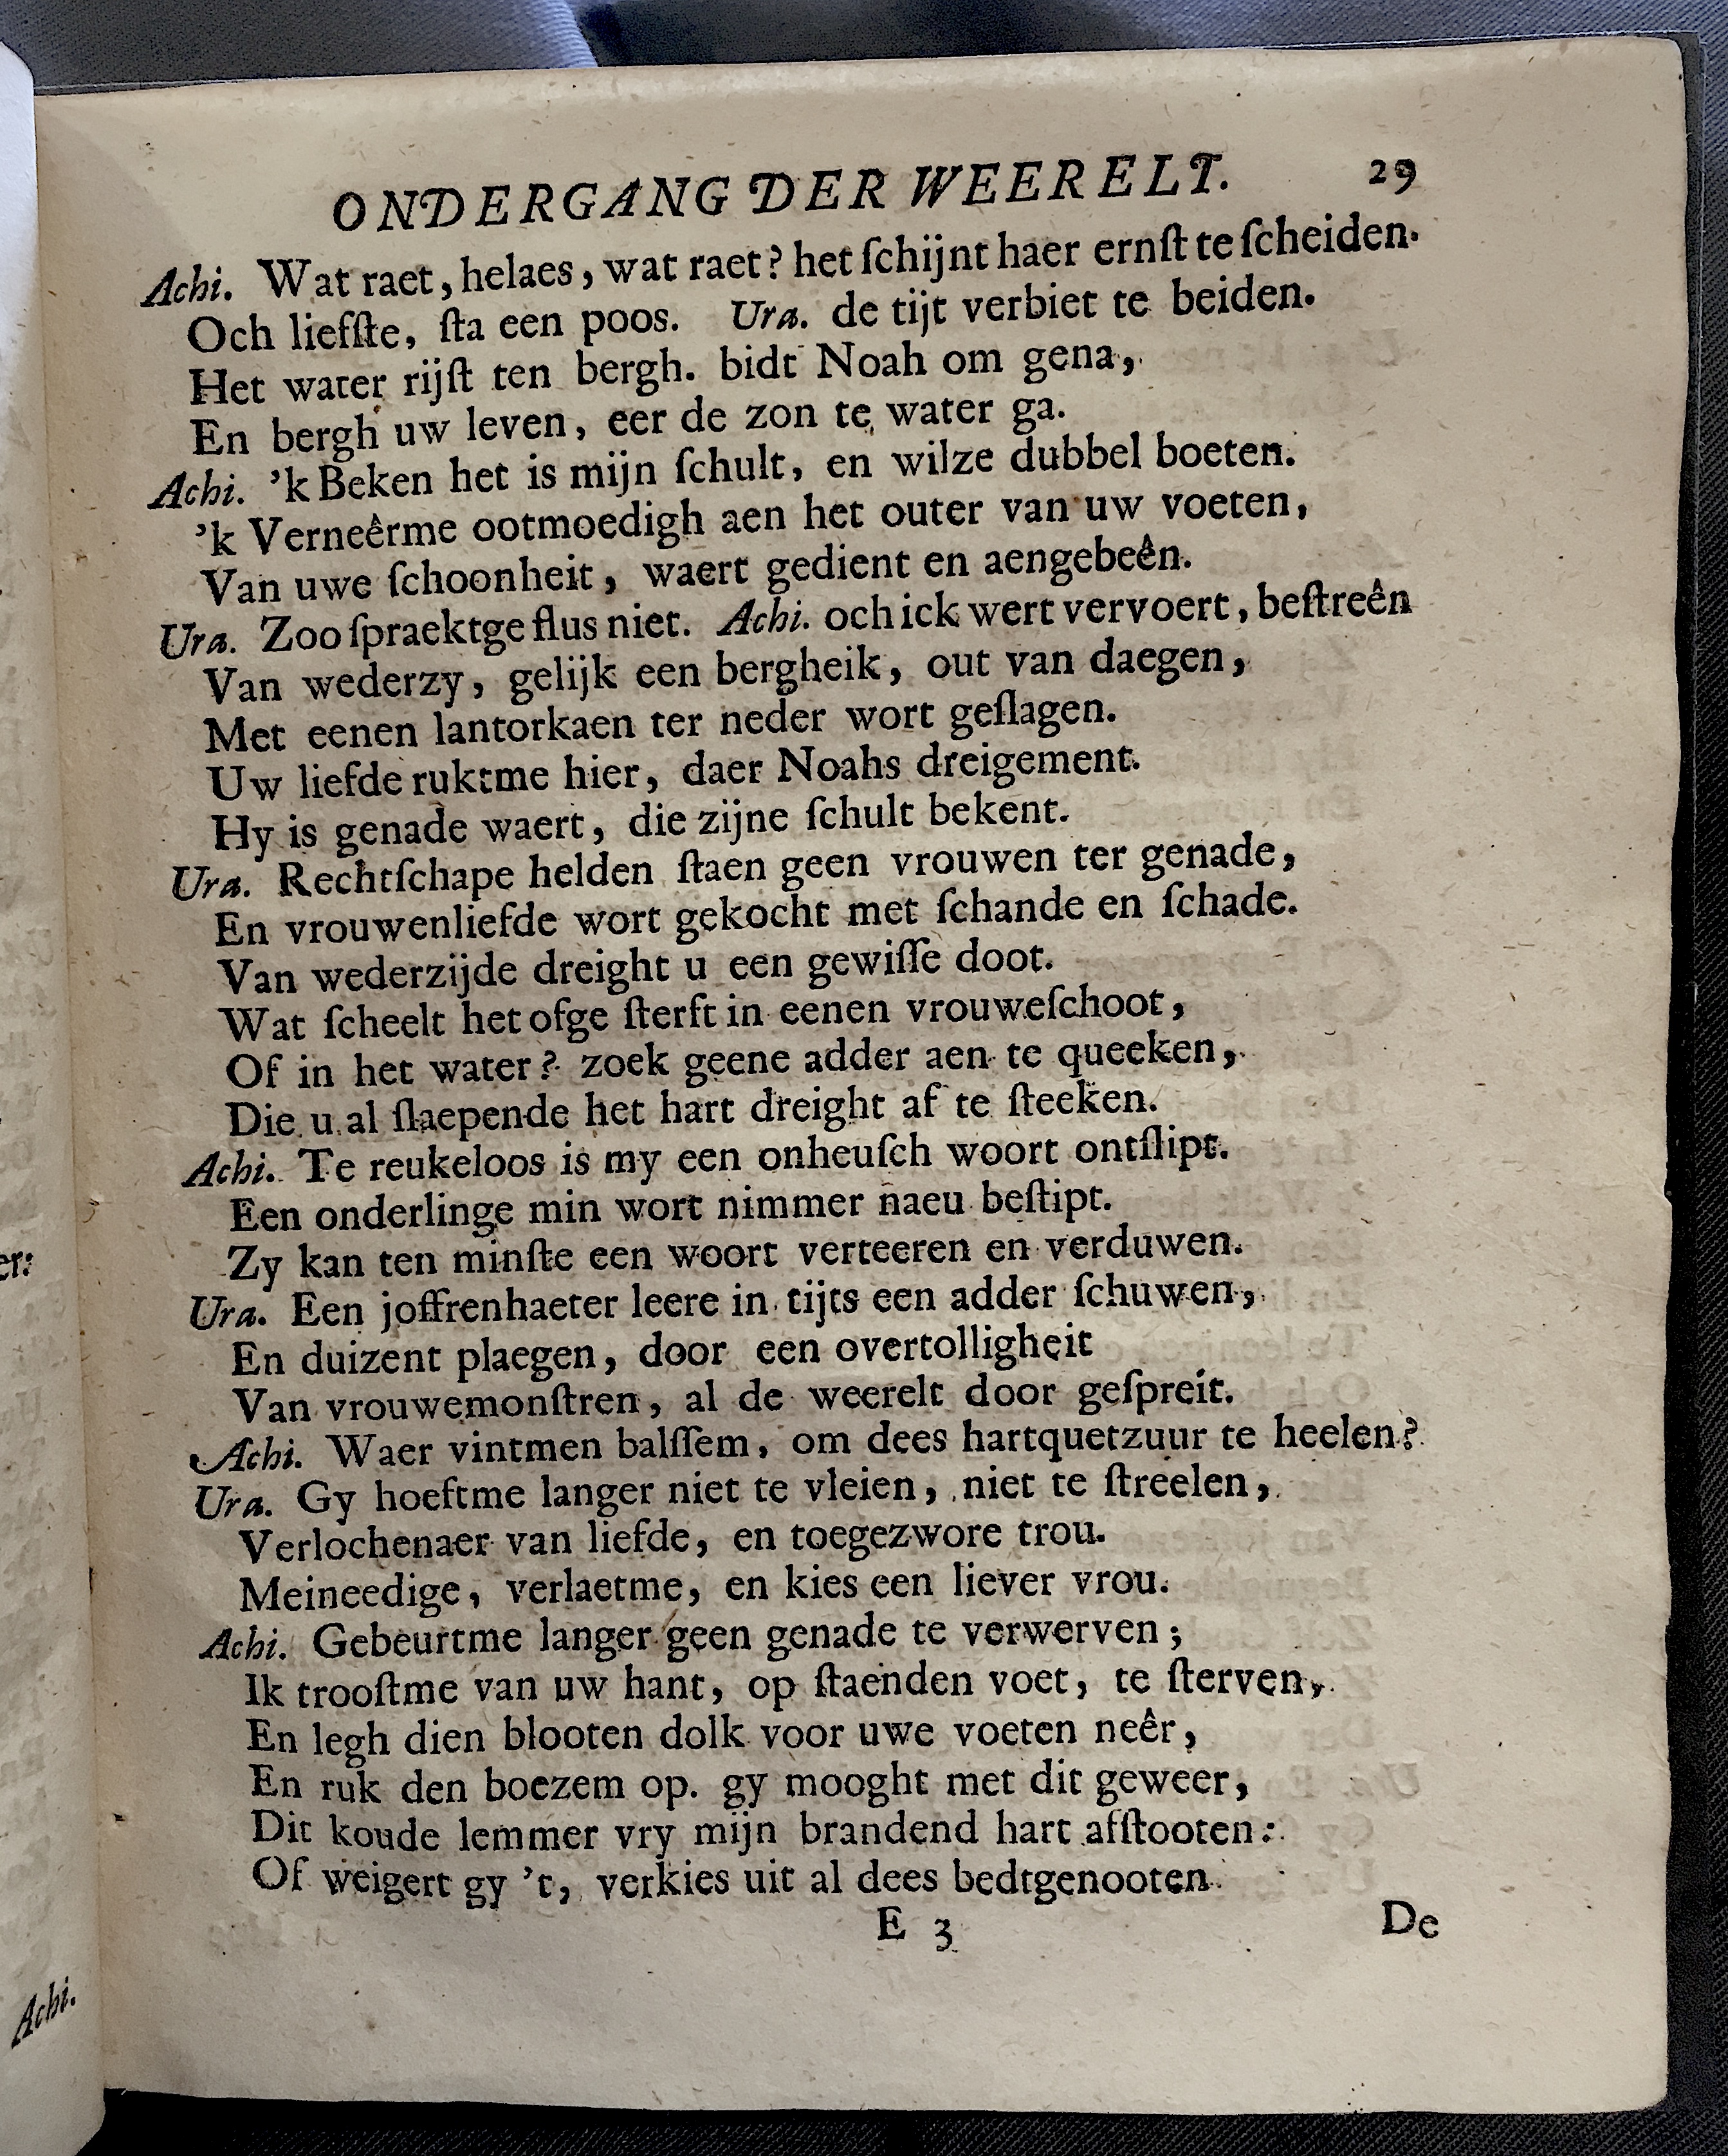 ONDERGANG DER WEERELT. 29
Achi. Wat raet, helaes, wat raet? het ſchijnt haer ernſt te ſcheiden.
Och liefſte, ſta een poos. Ura. de tijt verbiet te beiden.
Het water rijſt ten bergh. bidt Noah om gena,
En bergh uw leven, eer de zon te water ga.
Achi. 'k Beken het is mijn ſchult, en wilze dubbel boeten.
'k Verneêrme ootmoedigh aen het outer van uw voeten,
Van uwe ſchoonheit, waert gedient en aengebeên.
Ura. Zoo ſpraektge flus niet. Achi. och ick wert vervoert, beſtreên
Van wederzy, gelijk een bergheik, out van daegen,
Met eenen lantorkaen ter neder wort geſlagen.
Uw liefde ruktme hier, daer Noahs dreigement.
Hy is genade waert, die zijne ſchult bekent.
Ura. Rechtſchape helden ſtaen geen vrouwen ter genade,
En vrouwenliefde wort gekocht met ſchande en ſchade.
Van wederzijde dreight u een gewiſſe doot.
Wat ſcheelt het ofge ſterft in eenen vrouweſchoot,
Of in het water? zoek geene adder aen te queeken,
Die u al ſlaepende het hart dreight af te ſteeken.
Achi. Te reukeloos is my een onheuſch woort ontſlipt.
Een onderlinge min wort nimmer naeu beſtipt.
Zy kan ten minſte een woort verteeren en verduwen.
Ura. Een joffrenhaeter leere in tijts een adder ſchuwen,
En duizent plaegen, door een overtolligheit
Van vrouwemonſtren, al de weerelt door geſpreit.
Achi. Waer vintmen balſſem, om dees hartquetzuur te heelen?
Ura. Gy hoeftme langer niet te vleien, niet te ſtreelen,
Verlochenaer van liefde, en toegezwore trou.
Meineedige, verlaetme, en kies een liever vrou.
Achi. Gebeurtme langer geen genade te verwerven;
Ik trooſtme van uw hant, op ſtaenden voet, te ſterven,
En legh dien blooten dolk voor uwe voeten neêr,
En ruk den boezem op. gy mooght met dit geweer,
Dit koude lemmer vry mijn brandend hart afſtooten:
Of weigert gy 't, verkies uit al dees bedtgenooten
E 3 De
er:
Achi.